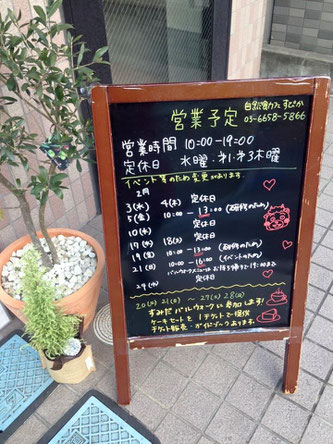 自家焙煎カフェ すじか
03-6658-5866
営業予定
営業時間 10:00-19:00
定休日 水曜・第1・第3木曜
イベント等のため変更があります。
2月
3(水) 4(木) 定休日
5(金) 10:00 - 13:00 (研修のため)
10(水) 定休日
17(水) 18(木) 定休日
19(金) 10:00 - 13:00 (研修のため)
21(日) 10:00 - 16:00 (イベントのため)
24(水) 定休日
20(土) 21(日) ~ 27(土) 28(日)
すみだバルウォークに参加します!
ケーキセットを1チケットで提供
チケット販売・ガイドブックあります。